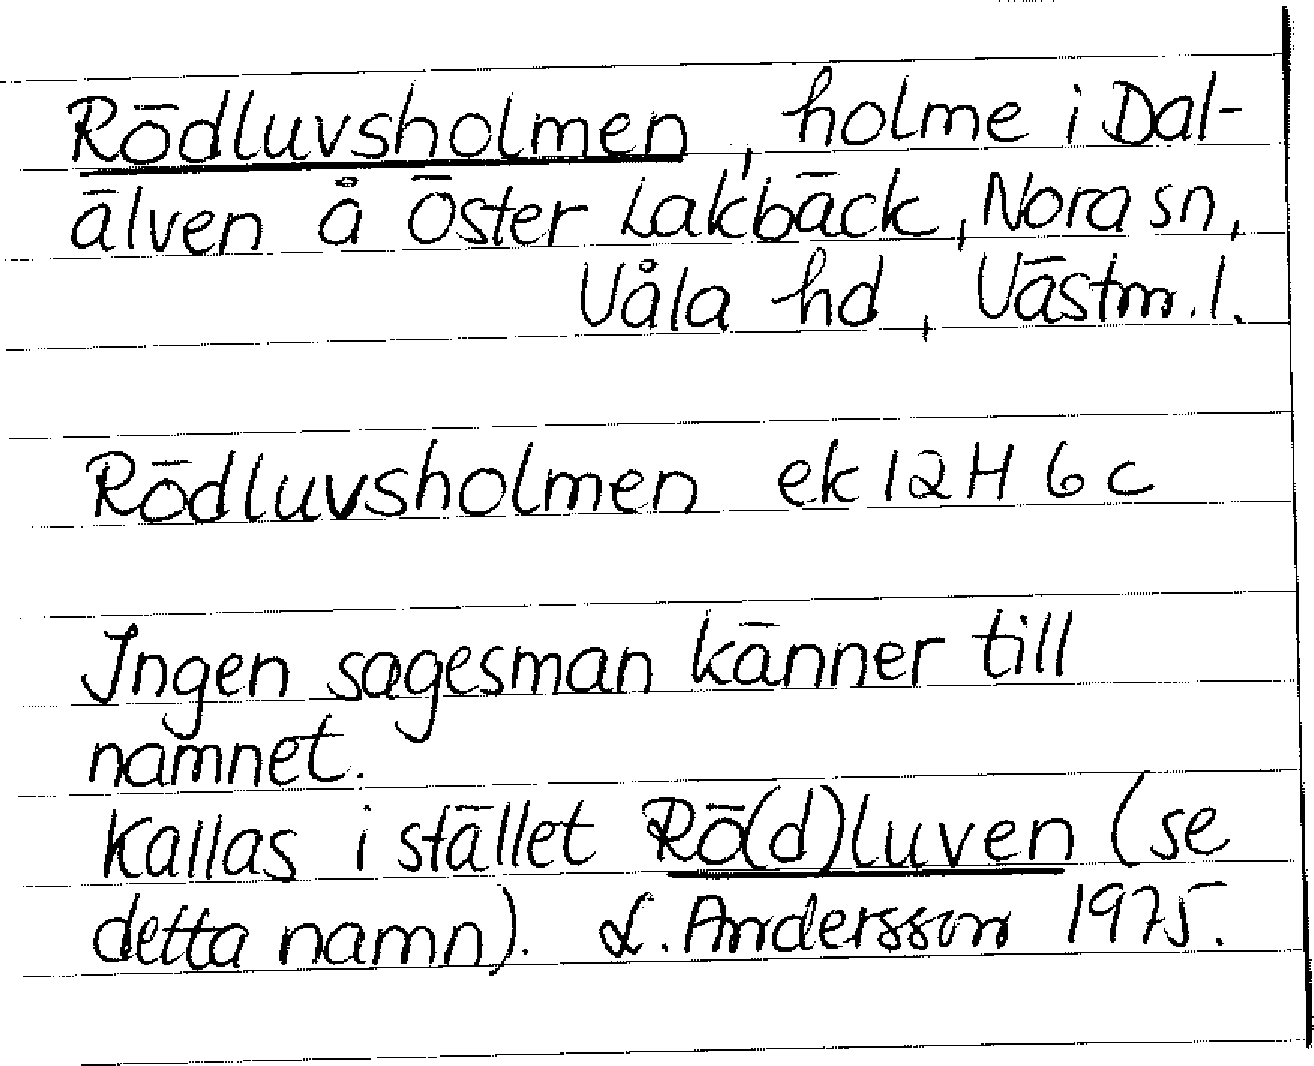 Rödluvsholmen, holme i Dal-
älven å Öster Lakbäck, Nora sn,
Våla hd, Västm.l.
Rödluvsholmen ek 12H 6c
Ingen sagesman känner till
namnet.
Kallas i stället Rö(d)luven (se
detta namn). L. Andersson 1975.